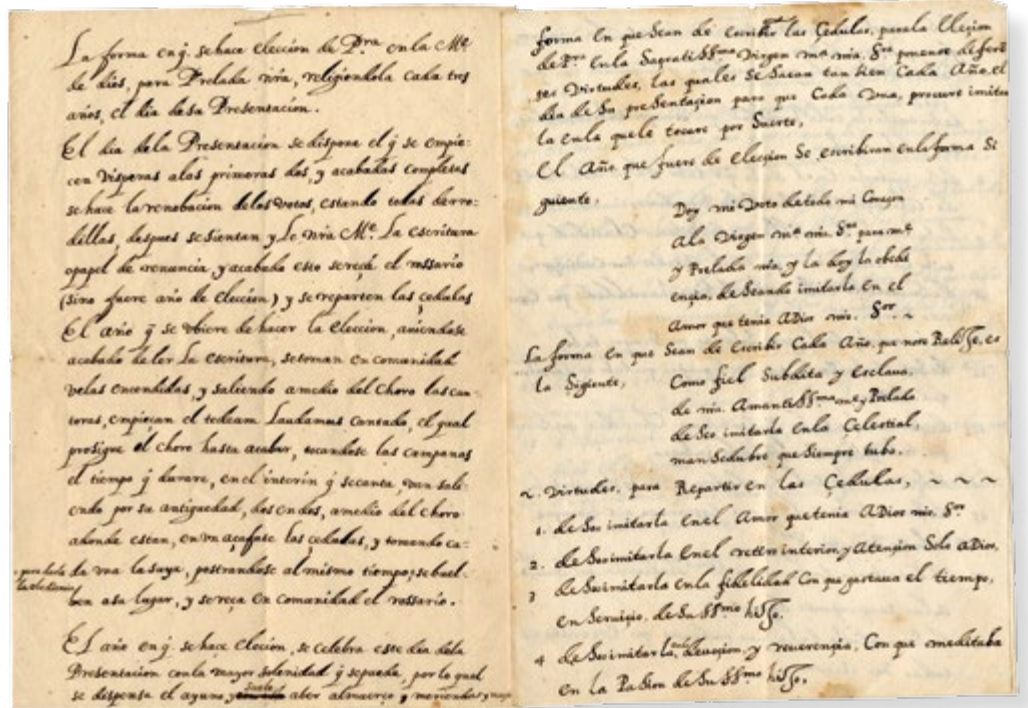 La forma en q̃. se hace eleccion de Pra. en la Me.
de dios, para Prelada nra, religiendola cada tres
años, el dia de su Presentacion.
El dia dela Presentacion se dispone el q̃ se empie-
cen visperas alas primeras dos, y acabadas completas
se hace la renobacion delos votos, estando todas de rro-
dillas, despues se sientan y Lee nra Me. La escritura
opapel de renuncia, y acabado esto se reça el rossario
(sino fuere año de eleccion) y se reparten las çedulas
El año q̃ se ubiere de hacer la eleccion, aviendose
acabado de ler La escritura, se toman en comunidad
velas encendidas, y saliendo a medio del choro las can-
toras, empiecan el tedeam Laudamus Cantado, el qual
prosigue el choro hasta acabar, tocandose las campanas
el tiempo q̃ durare, en el interin q̃ se canta, van sali-
endo por su antiguedad, dos en dos, a medio del choro
adonde estan, en vn açafate las çedulas, y tomando ca-
da vna la suya, postrandose al mismo tiempo, se buel-
ben a su lugar, y se reça en comunidad el rossario.
El año en q̃. se hace elecion, se celebra este dia dela
Presentacion con la mayor solenidad q̃ se pueda, por lo qual
se dispensa el ayuno, y suele aber almuerço y meriendas y
forma En que Sean de escribir las Çedulas, para la Elegion
de Pra. En la Sagratissma Virgen me. nra. Sra.
ses Virtudes, las quales Se Sacan tan bien Cada Año, el
dia de Su presentaçion para que Cada Vna, procure imitar
la en la que le tocare por Suerte,
El Año que fuere de elegion Se escribiran en la forma Si
guiente,
Doy mi Voto de todo mi Coraçon
Ala Virgen me. nra. Sra. para me.
y Prelada nra, y la doy la obedi
encia, de Seando imitarla en el
Amor que tenia ADios nro. Sor. ~
La forma En que Sean de Escribir Cada Año, que no se Relije, es
la Sigiente,
Como fiel Subdita y Esclaua,
de nra. Amantissma. me. y Prelada
de Seo imitarla En la Celestial,
man Sedubre que Siempre tubo.
~. Virtudes, para Repartir en las Çedulas, ~ ~ ~
1. de Seo imitarla En el Amor que tenia ADios nro. Sr.
2. de Seo imitarla En el retiro interior, y Atension Solo ADios,
3 de Seo imitarla En la fidelidad Con que gastaua el tiempo,
en Seruicio, de Su SSmo. hijo.
4 de Seo imitarla en la deuoçion, y reuerençia. Con que meditaba
en la Pasion de Su SSmo. hijo,